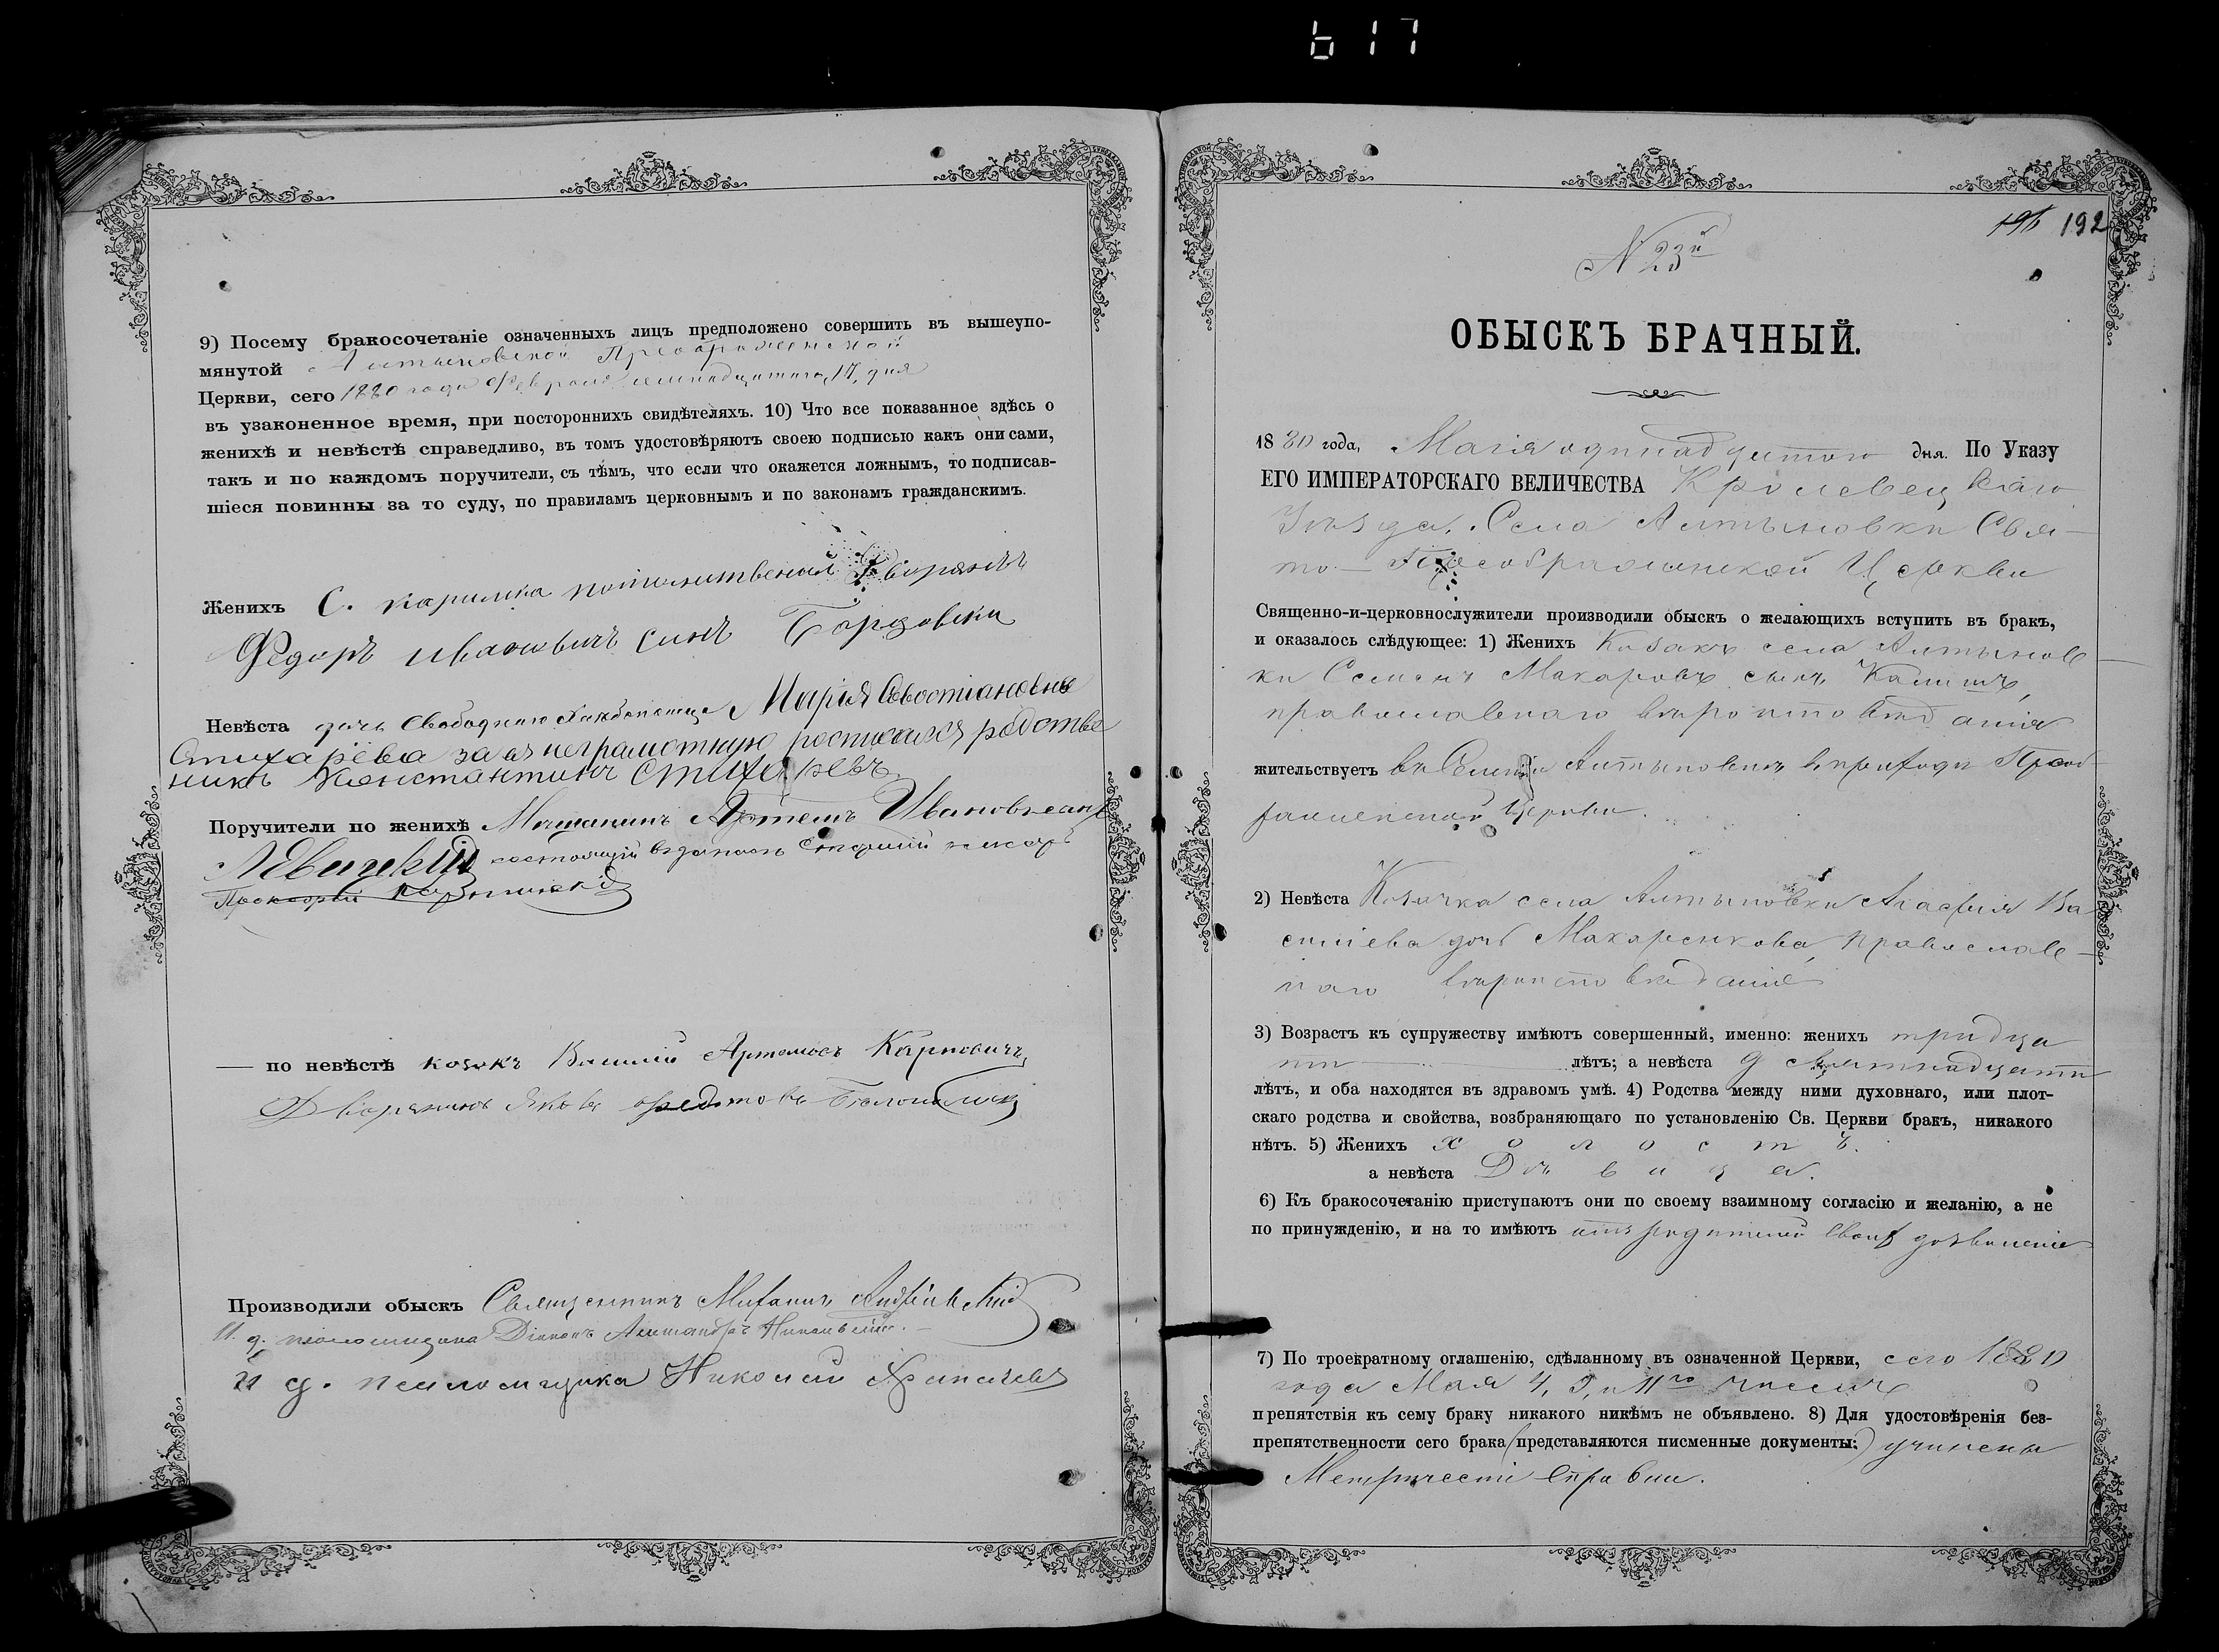 617
9) Посему бракосочетаніе означенныхъ лицъ предположено совершить въ вышеупо-
мянутой Алтыновской Преображенской
Церкви, сего 1880 года Февраля семнадцатаго, 17, дня
въ узаконенное время, при постороннихъ свидѣтеляхъ. 10) Что все показанное здѣсь о
женихѣ и невѣстѣ справедливо, въ томъ удостовѣряютъ своею подписью какъ они сами,
такъ и по каждомъ поручители, съ тѣмъ, что если что окажется ложнымъ, то подписав-
шіеся повинны за то суду, по правиламъ церковнымъ и по законамъ гражданскимъ.
Женихъ С. Дворянинъ
Федоръ Ивановичъ сынъ
Невѣста дочь Свободнаго Марія Севостіановна
Стихарева за ея неграмотную росписался родстве
никъ Констaнтинъ Стихаревъ
Поручители по женихѣ Мѣщанинъ Артемъ Ивановъ сынъ
Левицкій состоящій
Прокофій
— по невѣстѣ козакъ Василій Артемовъ Карповичъ
Дворянинъ Яковъ
Производили обыскъ Священникъ Михаилъ Андріевскій
И. д. псаломщика Діаконъ Александръ
И д. псаломщика Николай
196 192
N 23й
ОБЫСКЪ БРАЧНЫЙ.
1880 года, Маія одинадцатого дня. По Указу
ЕГО ИМПЕРАТОРСКАГО ВЕЛИЧЕСТВА Кролевецкаго
Уѣзда, Села Алтыновки Свя-
то-Преображенской Церкви
Священно-и-церковнослужители производили обыскъ о желающихъ вступить въ бракъ,
и оказалось слѣдующее: 1) Женихъ Козакъ села Алтынов-
ки Семенъ Макаровъ сынъ
православнаго вѣроисповѣданія
жительствуетъ въ Селѣ Алтыновкѣ въ приходѣ Преоб-
раженской Церкви.
2) Невѣста Козачка села Алтыновки Агафія Ва
силіева дочь Макаренкова, православ-
наго вѣроисповѣданія
3) Возрастъ къ супружеству имѣютъ совершенный, именно: женихъ тридца
ти лѣтъ; а невѣста девятнадцати
лѣтъ, и оба находятся въ здравомъ умѣ. 4) Родства между ними духовнаго, или плот-
скаго родства и свойства, возбраняющаго по установленію Св. Церкви бракъ, никакого
нѣтъ. 5) Женихъ холостъ.
а невѣста Дѣвица.
6) Къ бракосочетанію приступаютъ они по своему взаимному согласію и желанію, а не
по принужденію, и на то имѣютъ отъ родителей своихъ дозволеніе
7) По троекратному оглашенію, сдѣланному въ означенной Церкви, сего 1880
года Мая 4, 9, и 11го числъ
препятствія къ сему браку никакого никѣмъ не объявлено. 8) Для удостовѣренія без-
препятственности сего брака (представляются писменные документы:) учинены
Метрическі справки.